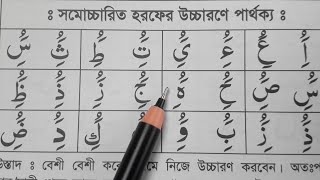 ঃ সমোচ্চারিত হরফের উচ্চারণে পার্থক্য ঃ
س ث ط ت ى ء ع ا
ظ ذ ز ج ه ح ص س
ض د ك و ب ز ذ
স্তাদ ঃ বেশী বেশী করে নিজে উচ্চারণ করবেন।